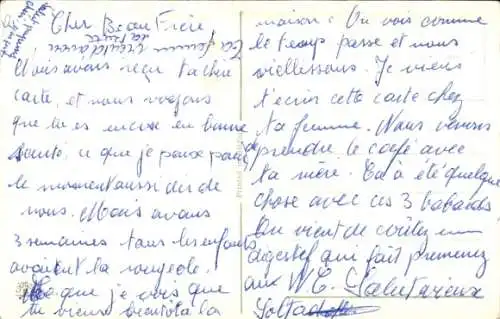 Cher Beau Frère
Nous avons reçu ta chère
carte, et nous voyons
que tu es encore en bonne
santé, ce que je peux pour
le moment aussi dire de
nous. Mais avons
3 semaines tous les enfants
avaient la rougeole.
que je vois que
tu viens bientôt à la
maison. On vois comme
le temps passe et nous
viellessons. Je viens
t'ecrire cette carte chez
ta femme. Nous venons
de prendre le café avec
ta mère. Ça a été quelque
chose avec ces 3 babards
On vient de goûter un
digestif qui fait promenez
aux WC. Salutations